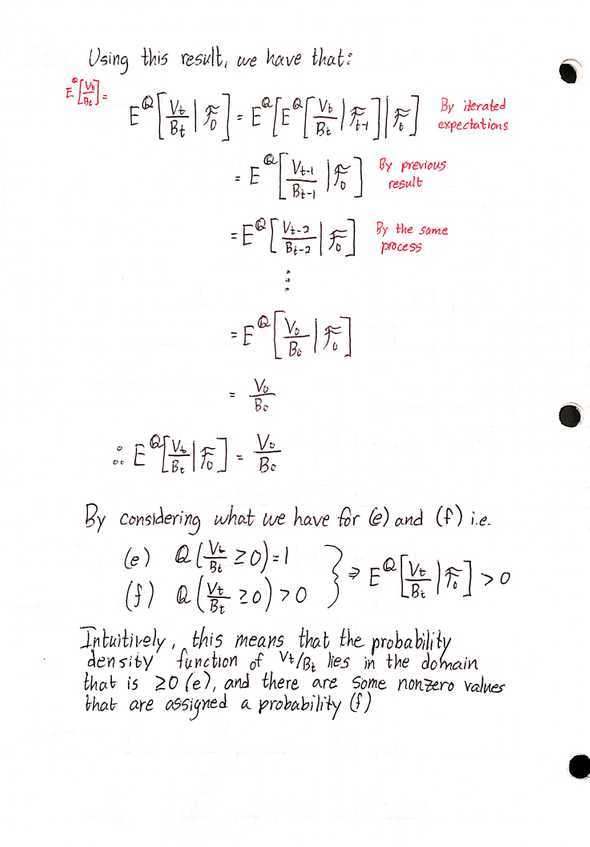 Using this result, we have that:
E^Q[Vt/Bt] =
E^Q[Vt/Bt | F0] = E^Q[E^Q[Vt/Bt | Ft-1] | Ft] By iterated expectations
= E^Q[Vt-1/Bt-1 | F0] By previous result
= E^Q[Vt-2/Bt-2 | F0] By the same process
⋮
= E^Q[V0/B0 | F0]
= V0/B0
∴ E^Q[Vt/Bt | F0] = V0/B0
By considering what we have for (e) and (f) i.e.
(e) Q(Vt/Bt ≥ 0) = 1
(f) Q(Vt/Bt ≥ 0) > 0 } ⇒ E^Q[Vt/Bt | F0] > 0
Intuitively, this means that the probability
density function of Vt/Bt lies in the domain
that is ≥ 0 (e), and there are some nonzero values
that are assigned a probability (f)